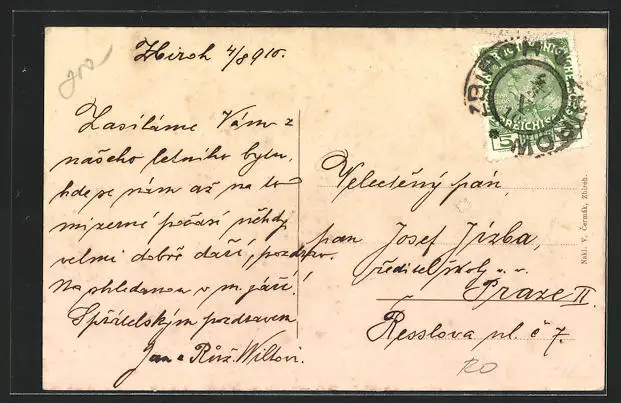 Zbiroh 4/8 910.
Zasíláme Vám z
našeho letního bytu,
kde se nám až na to
mizerné počasí někdy
velmi dobře daří, pozdrav.
Na shledanou v m. září!
S přátelským pozdravem
Jan a Růž. Wiltovi.
Velectěný pán,
pan Josef Jizba,
ředitel školy v. v.
Praze II
Resslova ul. č 7.
Nakl. V. Čermák, Zbiroh.
ZBIROH